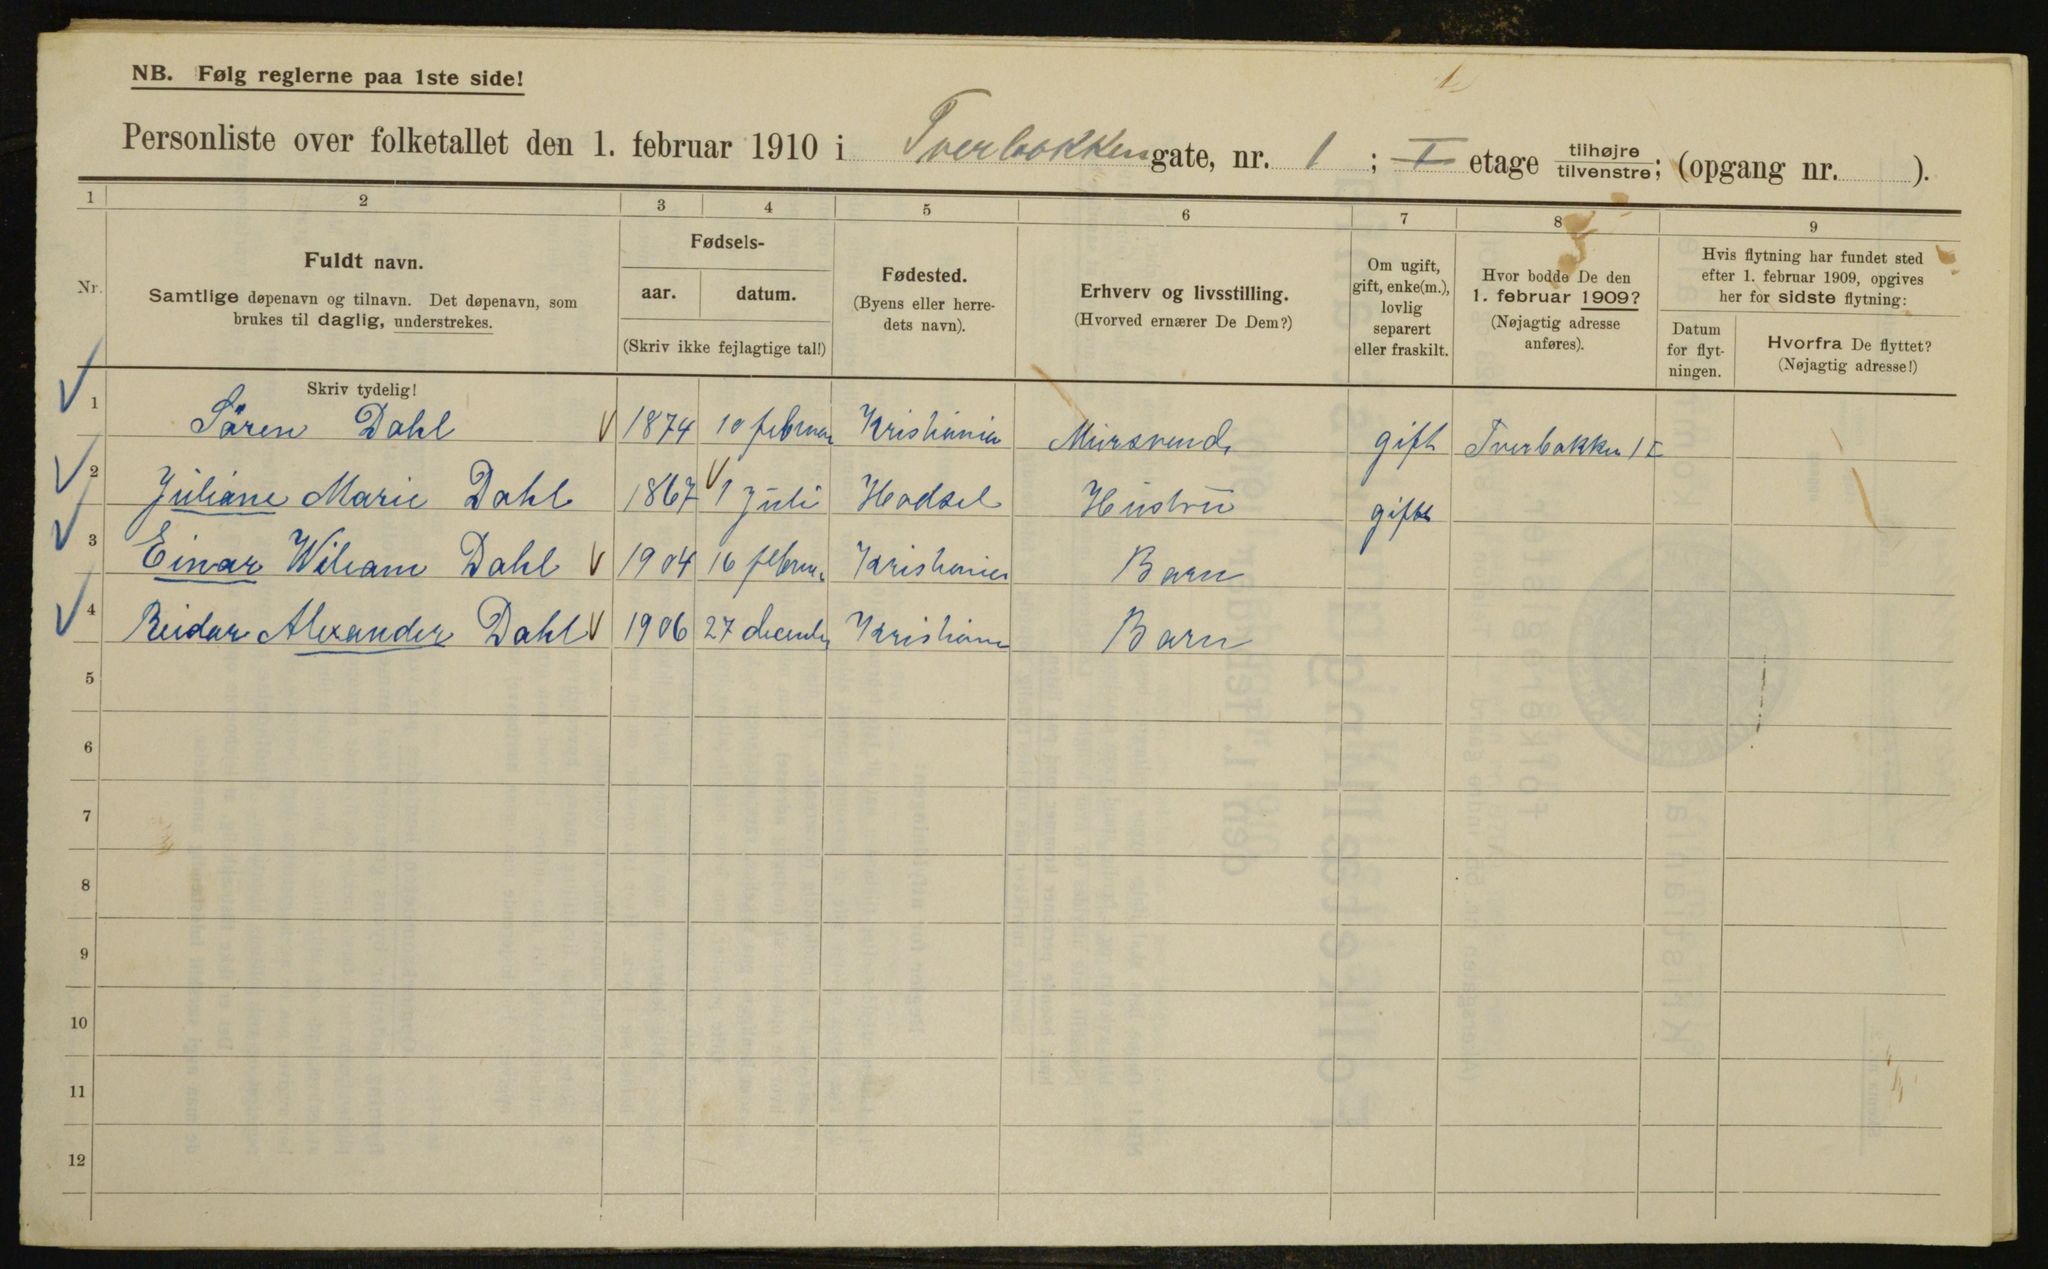 NB. Følg reglerne paa 1ste side!
Personliste over folketallet den 1. februar 1910 i Tverbakken gate, nr. 1 ; I etage tilhøjre/tilvenstre; (opgang nr. ).
1 2 3 4 5 6 7 8 9
Nr.
Fuldt navn.
Samtlige døpenavn og tilnavn. Det døpenavn, som
brukes til daglig, understrekes.
Fødsels-
aar. datum.
(Skriv ikke fejlagtige tal!)
Fødested.
(Byens eller herre-
dets navn).
Erhverv og livsstilling.
(Hvorved ernærer De Dem?)
Om ugift,
gift, enke(m.),
lovlig
separert
eller fraskilt.
Hvor bodde De den
1. februar 1909?
(Nøjagtig adresse
anføres).
Hvis flytning har fundet sted
efter 1. februar 1909, opgives
her for sidste flytning:
Datum
for flyt-
ningen.
Hvorfra De flyttet?
(Nøjagtig adresse!)
Skriv tydelig!
1 Sören Dahl 1874 10 februar Kristiania Mursvend gift Tverbakken 1 I
2 Juliane Marie Dahl 1867 1 Juli Hadsel Hustru gift
3 Einar Wiliam Dahl 1904 16 februar Kristiania Barn
4 Reidar Alexander Dahl 1906 27 december Kristiania Barn
5
6
7
8
9
10
11
12